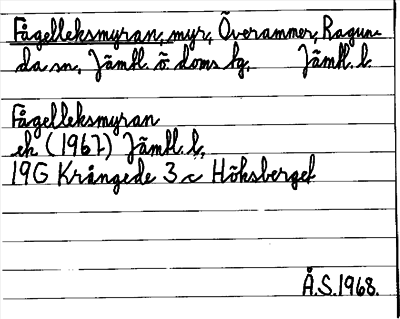 Fågelleksmyran, myr, Överammer, Ragun-
da sn, Jämtl. ö doms hg, Jämtl. l.
Fågelleksmyran
ek (1967) Jämtl. l.
19G Krångede 3 c Höksberget
Å.S. 1968.